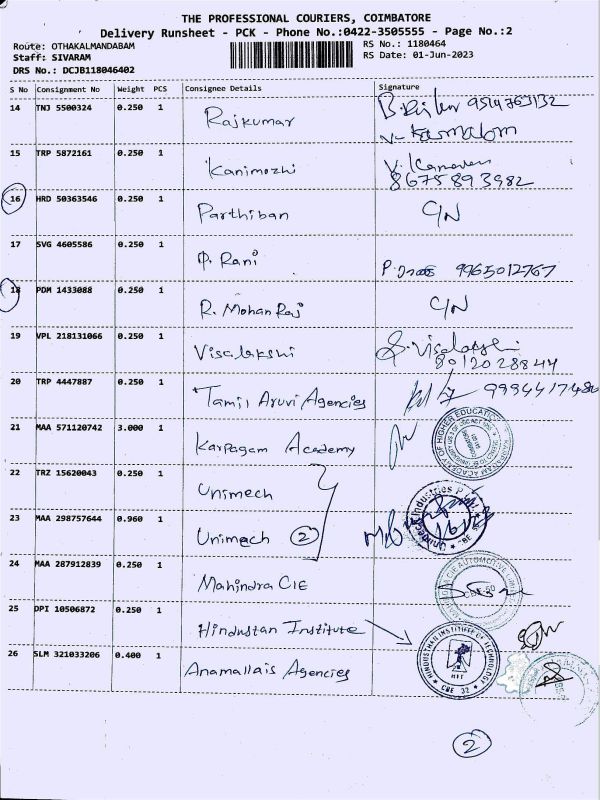 THE PROFESSIONAL COURIERS, COIMBATORE
Delivery Runsheet - PCK - Phone No.:0422-3505555 - Page No.:2
Route: OTHAKALMANDABAM RS No.: 1180464
Staff: SIVARAM RS Date: 01-Jun-2023
DRS No.: DCJB118046402
S No Consignment No Weight PCS Consignee Details Signature
14 TNJ 5500324 0.250 1 Rajkumar 9514763132
15 TRP 5872161 0.250 1 Kanimozhi
8675893982
16 HRD 50363546 0.250 1 Parthiban C/N
17 SVG 4605586 0.250 1 P. Rani 9965012767
18 PDM 1433088 0.250 1 R. Mohan Raj C/N
19 VPL 218131066 0.250 1 Visalakshi
8012028844
20 TRP 4447887 0.250 1 Tamil Aruvi Agencies
21 MAA 571120742 3.000 1 Karpagam Academy ACADEMY OF HIGHER EDUCATION
22 TRZ 15620043 0.250 1 Unimech
23 MAA 298757644 0.960 1 Unimech 2
24 MAA 287912839 0.250 1 Mahindra CIE
25 DPI 10506872 0.250 1 Hindustan Institute HINDUSTHAN INSTITUTE OF TECHNOLOGY
HIT
CBE 32
26 SLM 321033206 0.400 1 Anamallais Agencies
2